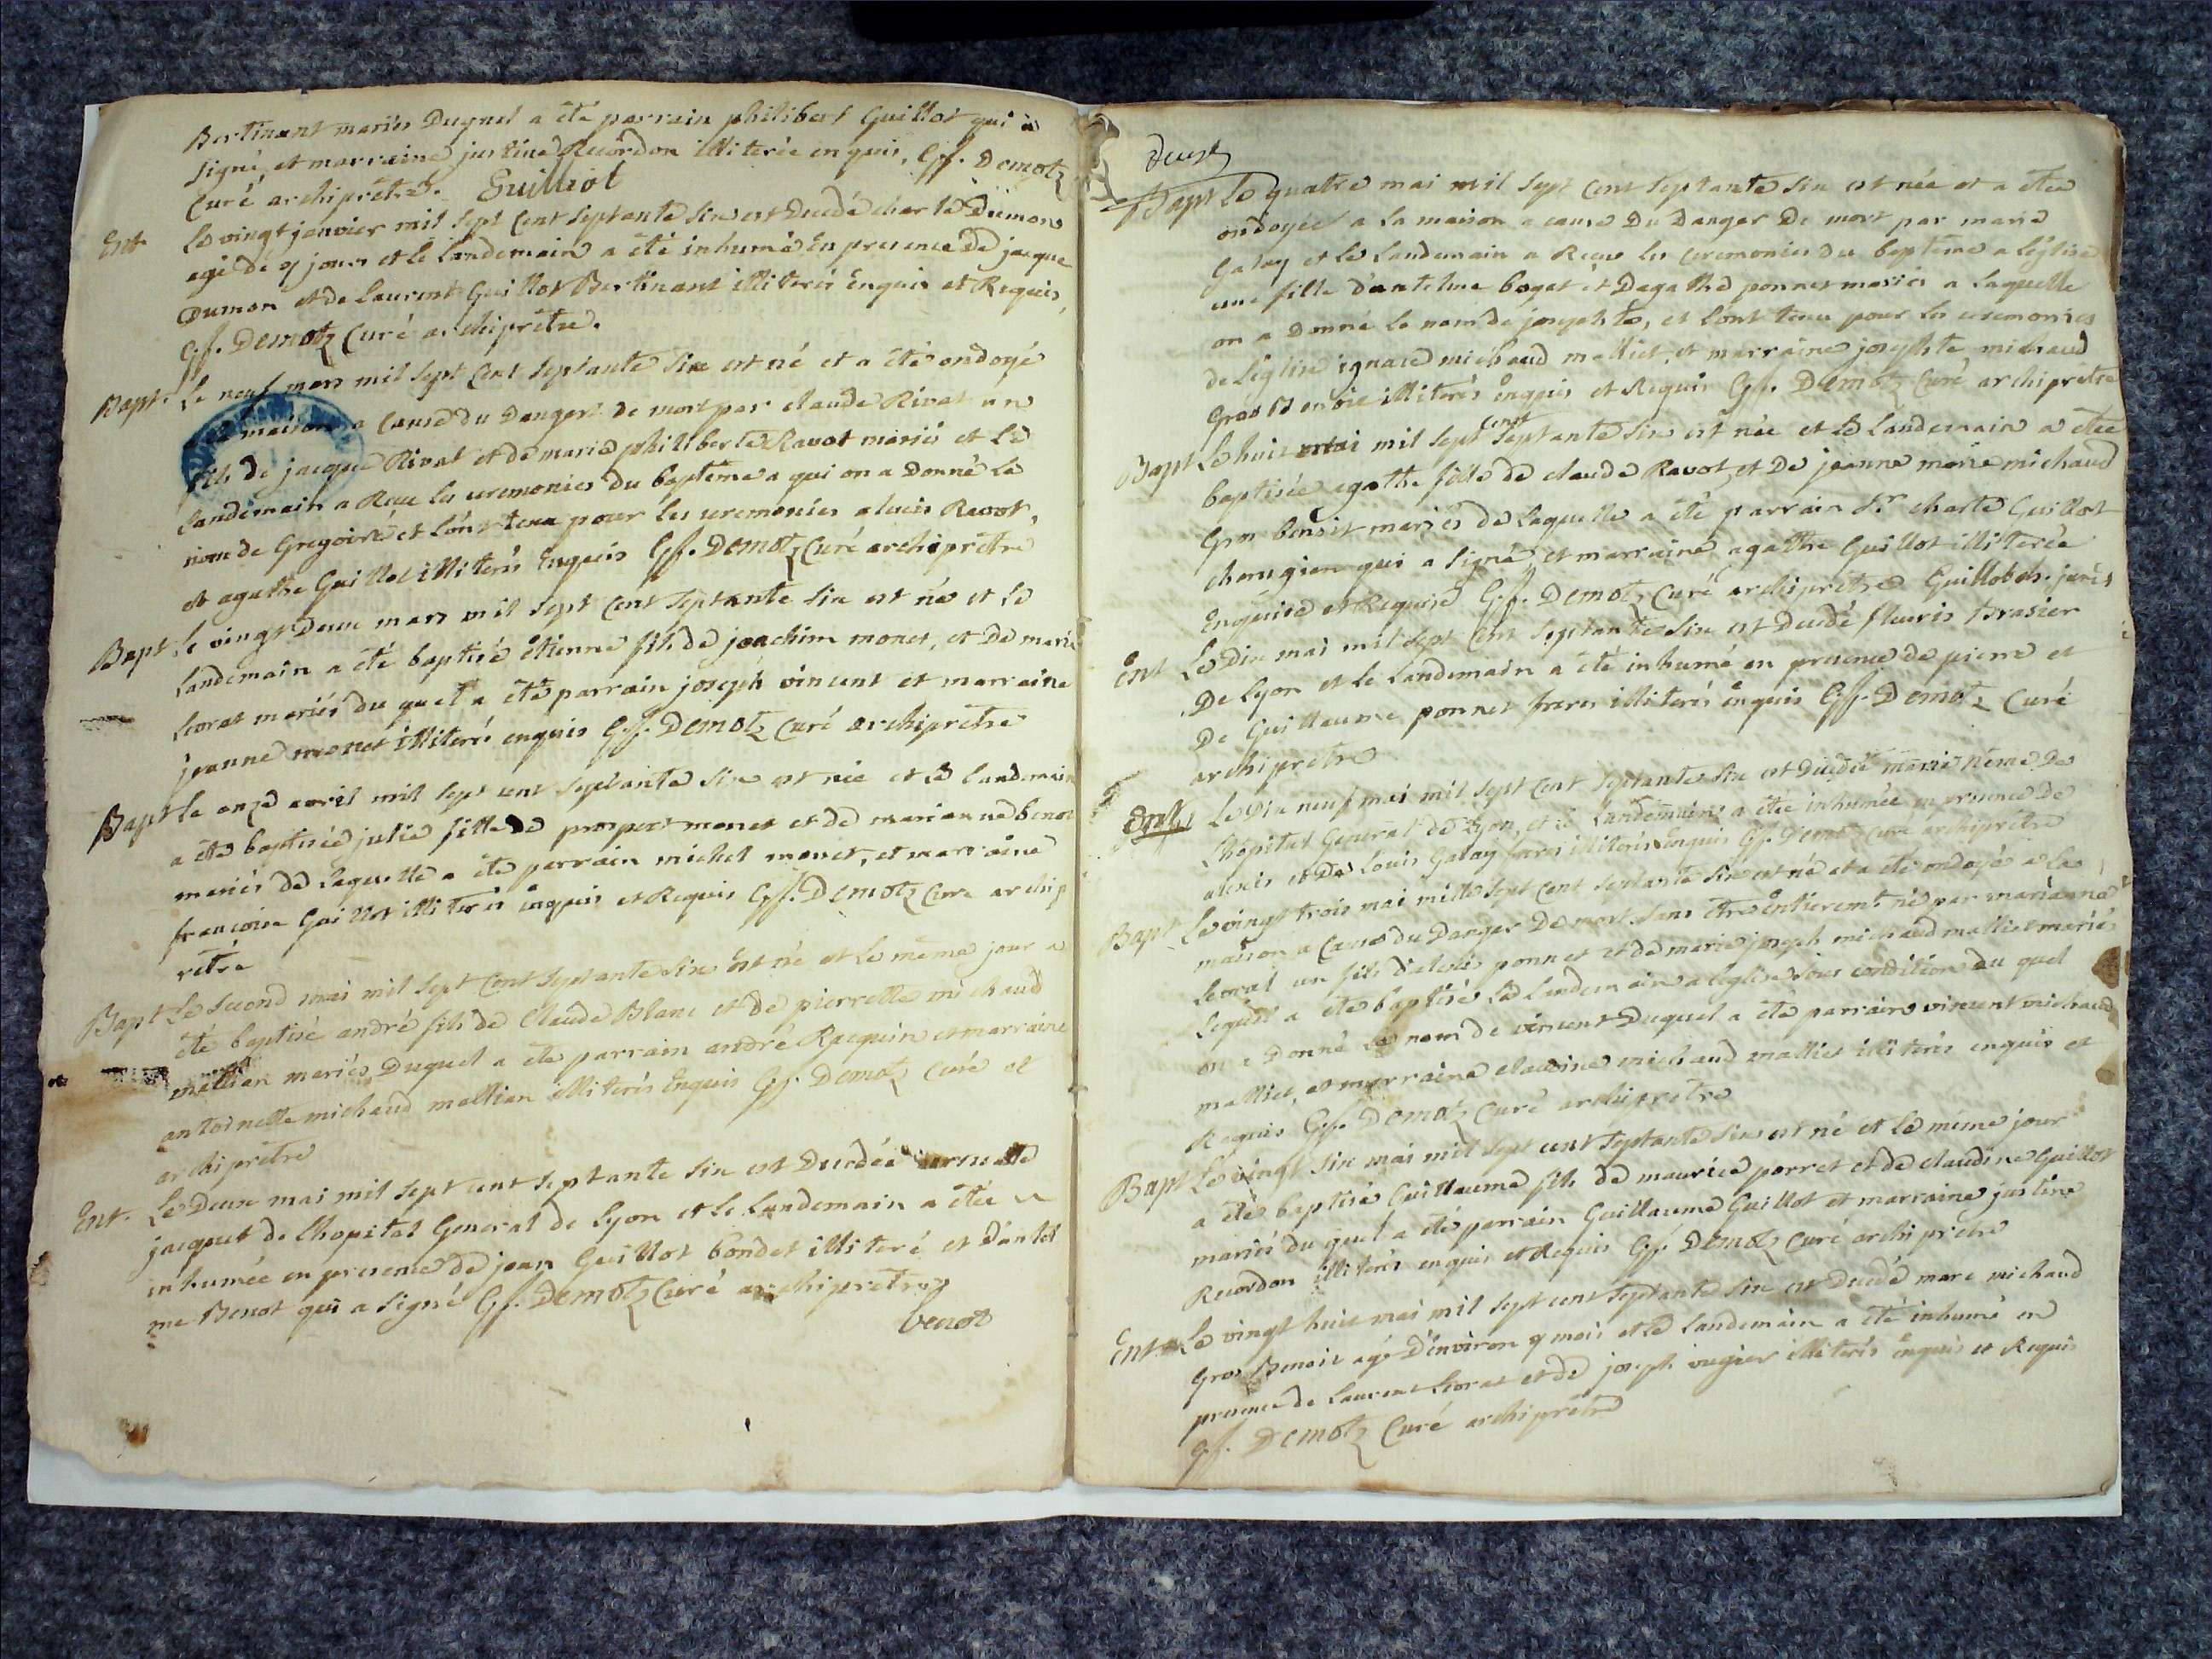 Bertinant mariés Duquel a été parrain philibert Guillot qui a
signé, et marraine justine Recordon illiterée enquis, Gf. Demotz
Curé archiprêtre. Guillot
Ent Le vingt janvier mil sept Cent septante six est Decedé charle Dumon
agé de 9 jours et le landemain a été inhumé En presence de jacque
Dumon et de laurent Guillot Bertinant illiterés enquis et Requis,
Gf. Demotz Curé archiprêtre.
Bapt. Le neuf mars mil sept Cent septante six est né et a été ondoyé
maison a Cause du Danger de mort par claude Rivat un
fils de jacque Rivat et de marie philiberte Ravot mariés et le
landemain a Recu les ceremonies du baptême a qui on a Donné le
nom de Gregoire et l'ont tenu pour les ceremonies Ravot,
et agathe Guillot illiterés Enquis Gf. Demotz Curé archiprêtre
Bapt Le vingt Deux mars mil sept Cent septante six est né et le
landemain a été baptisé étienne fils de joachim monet, et de marie
Leorat mariés du quel a été parrain joseph vincent et marraine
jeanne monet illiterés enquis Gf. Demotz Curé archiprêtre
Bapt Le onze avril mil sept cent septante six est née et le landemain
a été baptisée julie fille de prospert monet et de marianne benot
mariés de laquelle a été parrain michel monet, et marraine
francoise Guillot illiterés enquis et Requis Gf. Demotz Cure archip
rêtre
Bapt Le second mai mil sept Cent septante six est né et le même jour a
été baptisé andré fils de Claude Blanc et de pierrette michaud
mallian mariés Duquel a été parrain andré Racquin et marraine
antoinette michaud mallian illiterés Enquis Gf. Demotz Curé et
archiprêtre
Ent. Le Deux mai mil sept cent septante six est Decedée
jacquet de l'hopital General de lyon et le landemain a été
inhumée en presence de jean Guillot bondet illiteré et D'antel
me Benot qui a signé Gf. Demotz Curé archiprêtre
benot
Deux
Bapt Le quatre mai mil sept Cent septante six est née et a étée
ondoyée a la maison a cause Du Danger De mort par marie
Galay et le landemain a Recu les ceremonies du baptême a l'église
une fille d'antelme bogat et Dagathe ponnet mariés a laquelle
on a Donné le nom de josephte, et l'ont tenu pour les ceremonies
de l'église ignace michaud malliet, et marraine josephte michaud
Gros Benoit illiterés enquis et Requis Gf. Demotz Curé archiprêtre
cent
Bapt Le huit mai mil sept septante six est née et le landemain a étée
baptisée agathe fille de claude Ravot, et De jeanne marie michaud
Gros benoit mariés de laquelle a été parrain Sr. charle Guillot
chirugien qui a signé, et marraine agathe Guillot illiterée
Enquise et Requise Gf. Demotz Curé archiprêtre Guillot ch. juré
Ent Le Dix mai mil sept Cent septante six est Decedé fleuris brasier
De lyon et le landemain a été inhumé en presence de pierre et
De Guillaume ponnet freres illiterés enquis Gf. Demotz Curé
archiprêtre
Ent Le Dix neuf mai mil sept Cent septante six est Decedée marie Deme De
l'hôpital General de lyon, et le landemain a étée inhumée en presence De
alexis et De louis Galay freres illiterés Enquis Gf. Demotz Curé archiprêtre
Bapt Le vingt trois mai mille sept Cent septante six est né et a été ondoyé a la
maison a Cause du Danger De mort sans être Entierem.t né par marianne
Leorat un fils d'alexis ponnet et de marie joseph michaud malliet mariés
lequel a été baptisé le landemain a l'eglise sous condition du quel
on a Donné le nom de vincent Duquel a été parrain vincent michaud
malliet, et marraine claudine michaud malliet illiterés enquis et
Requis Gf. Demotz Curé archiprêtre
Bapt Le vingt six mai mil sept cent septante six est né et le même jour
a été baptisé Guillaume fils de maurice porret et de claudine Guillot
mariés du quel a été parrain Guillaume Guillot et marraine justine
Recordon illiterés enquis et Requis Gf. Demotz Curé archiprêtre
Ent Le vingt huit mai mil sept cent septante six est Decedé marc michaud
Gros Benoit agé D'environ 9 mois et le landemain a été inhumé en
presence de laurent leorat et de joseph vugier illiterés enquis et Requis
Gf. Demotz Curé archiprêtre